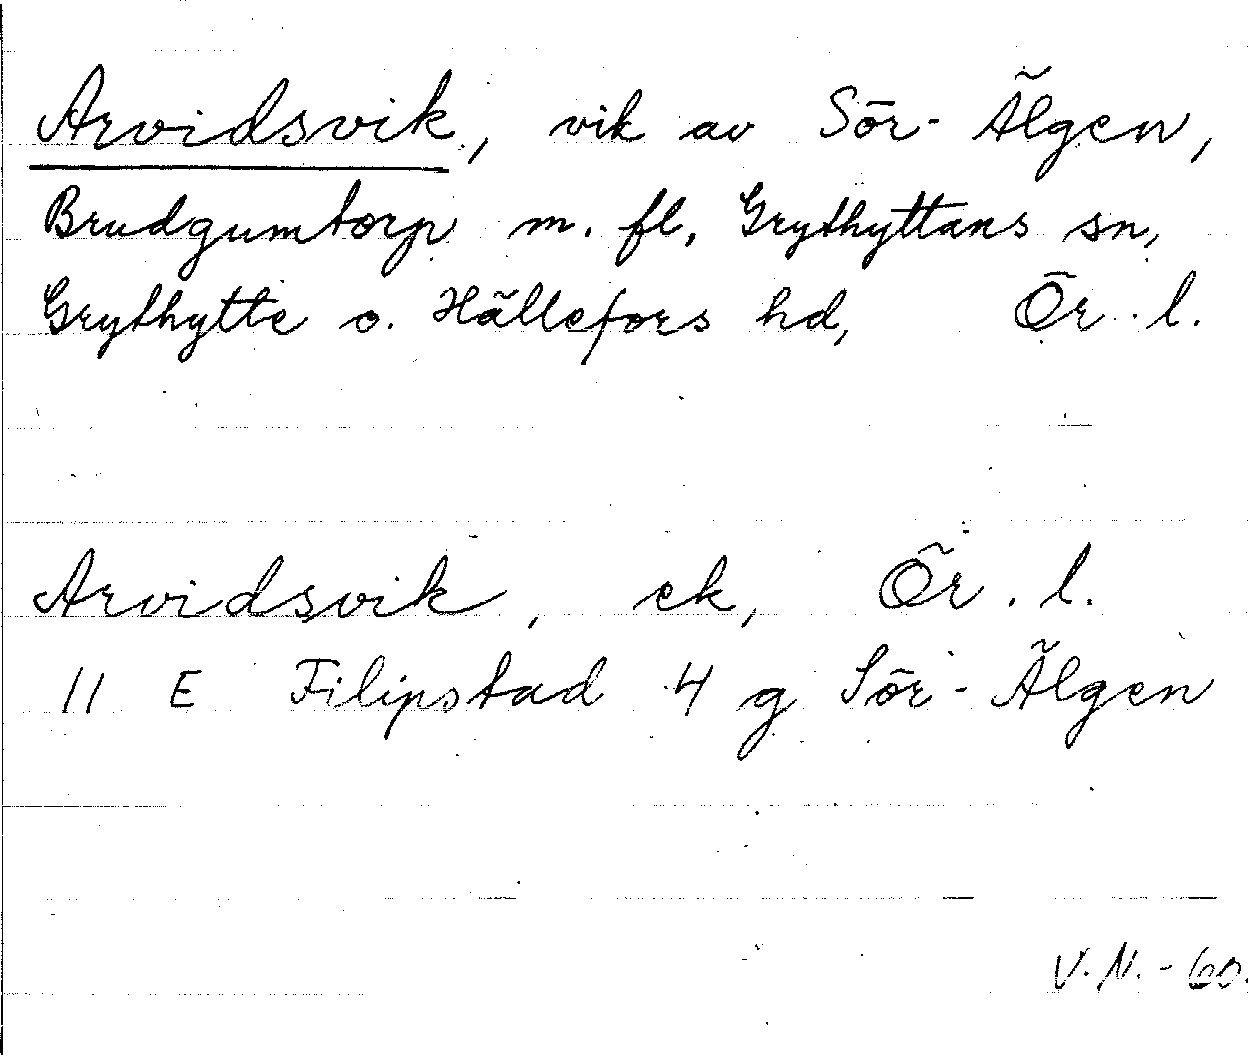 Arvidsvik, vik av Sör-Älgen,
Brudgumtorp m. fl, Grythyttans sn,
Grythytte o. Hällefors hd, Ör. l.
Arvidsvik, ek, Ör. l.
11 E Filipstad 4 g Sör-Älgen
V.N.-60.